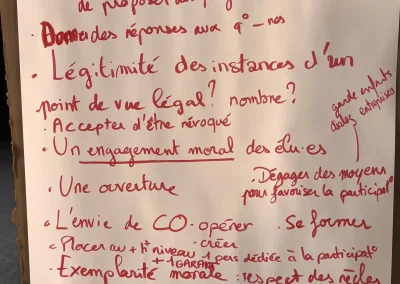 de proposer
· Donner des réponses aux q°-nos
· Légitimité des instances d'un
point de vue légal? nombre?
· Accepter d'être révoqué
garde enfants
dialog entreprises
· Un engagement moral des élu·es
· Dégager des moyens
pour favoriser la participat°
· Une ouverture
· L'envie de CO-opérer
· Se former
· créer
· Placer au + ht niveau 1 pers dédiée à la participat°
+ 1 GARANT
· Exemplarité morale : respect des règles